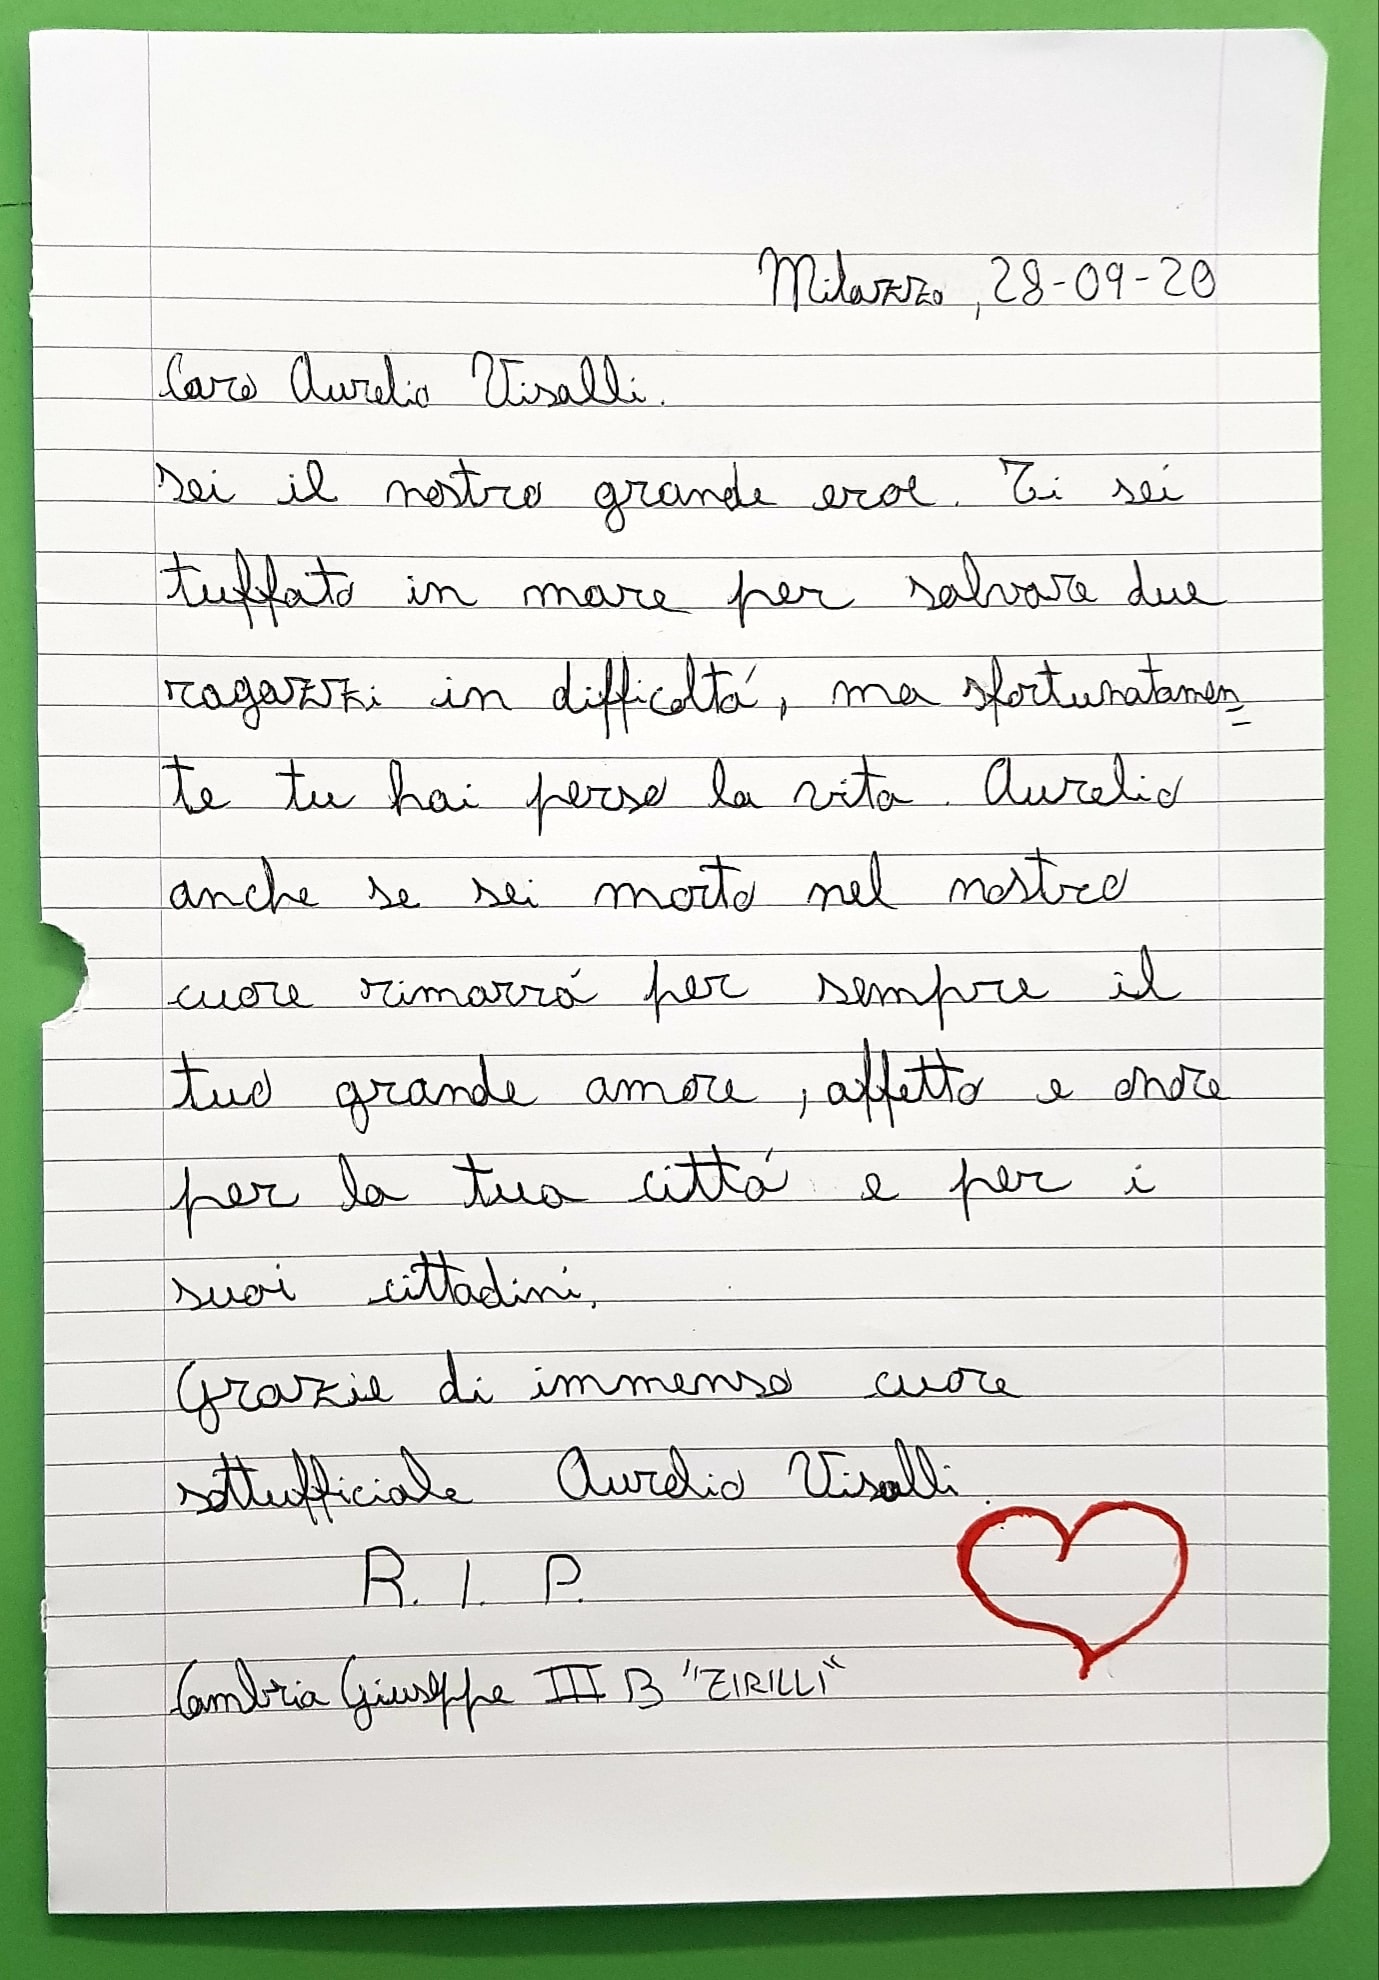 Milazzo, 28-09-20
Caro Aurelio Visalli.
sei il nostro grande eroe. Ti sei
tuffato in mare per salvare due
ragazzi in difficoltá, ma sfortunatamen=
te tu hai perso la vita. Aurelio
anche se sei morto nel nostro
cuore rimarrá per sempre il
tuo grande amore, affetto e onore
per la tua cittá e per i
suoi cittadini.
Grazie di immenso cuore
sottufficiale Aurelio Visalli.
R. I. P.
Cambria Giuseppe III B "ZIRILLI"